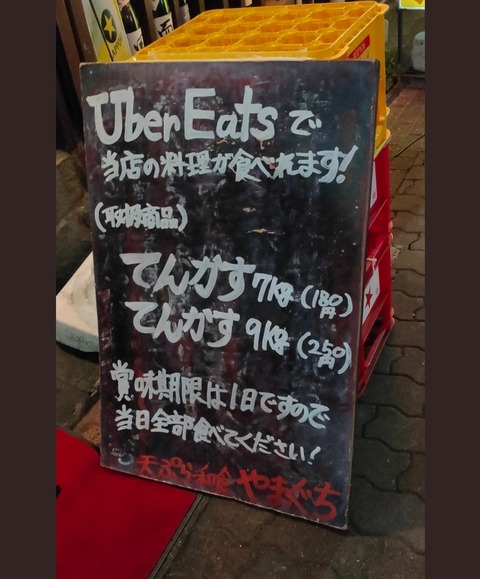 Uber Eatsで
当店の料理が食べれます!
てんかす 7kg (180円)
てんかす 9kg (250円)
賞味期限は1日ですので
当日全部食べてください!
天ぷら和食 やまぐち